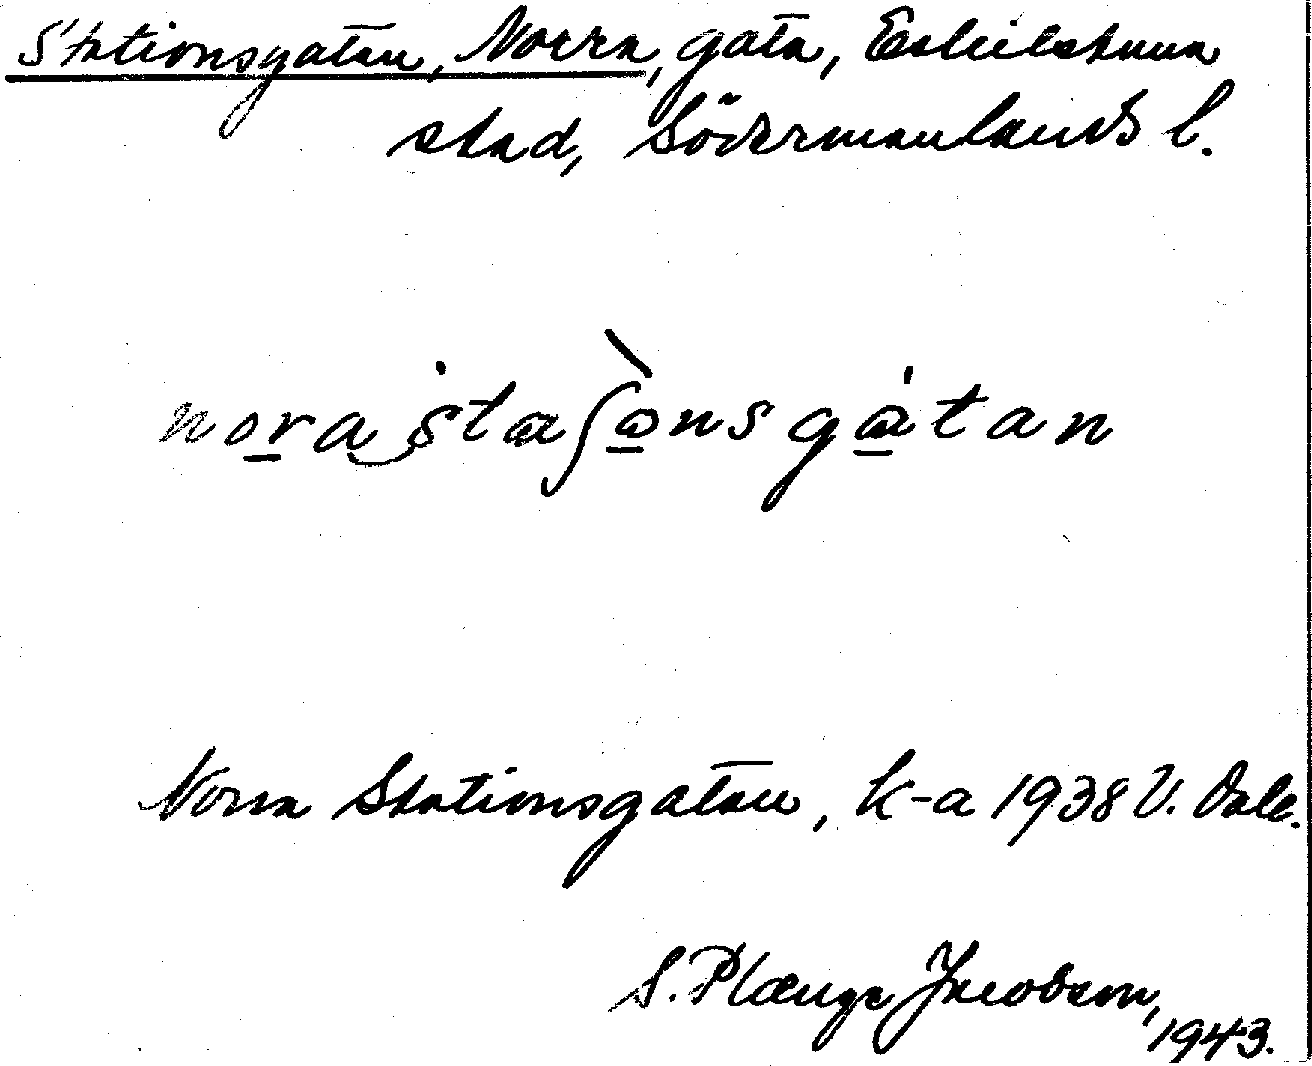 Stationsgatan, Norra, gata, Eskilstuna
stad, Södermanlands l.
nora staʃonsgatan
Norra Stationsgatan, k-a 1938 V. Dale.
S. Plænge Jacobson,
1943.